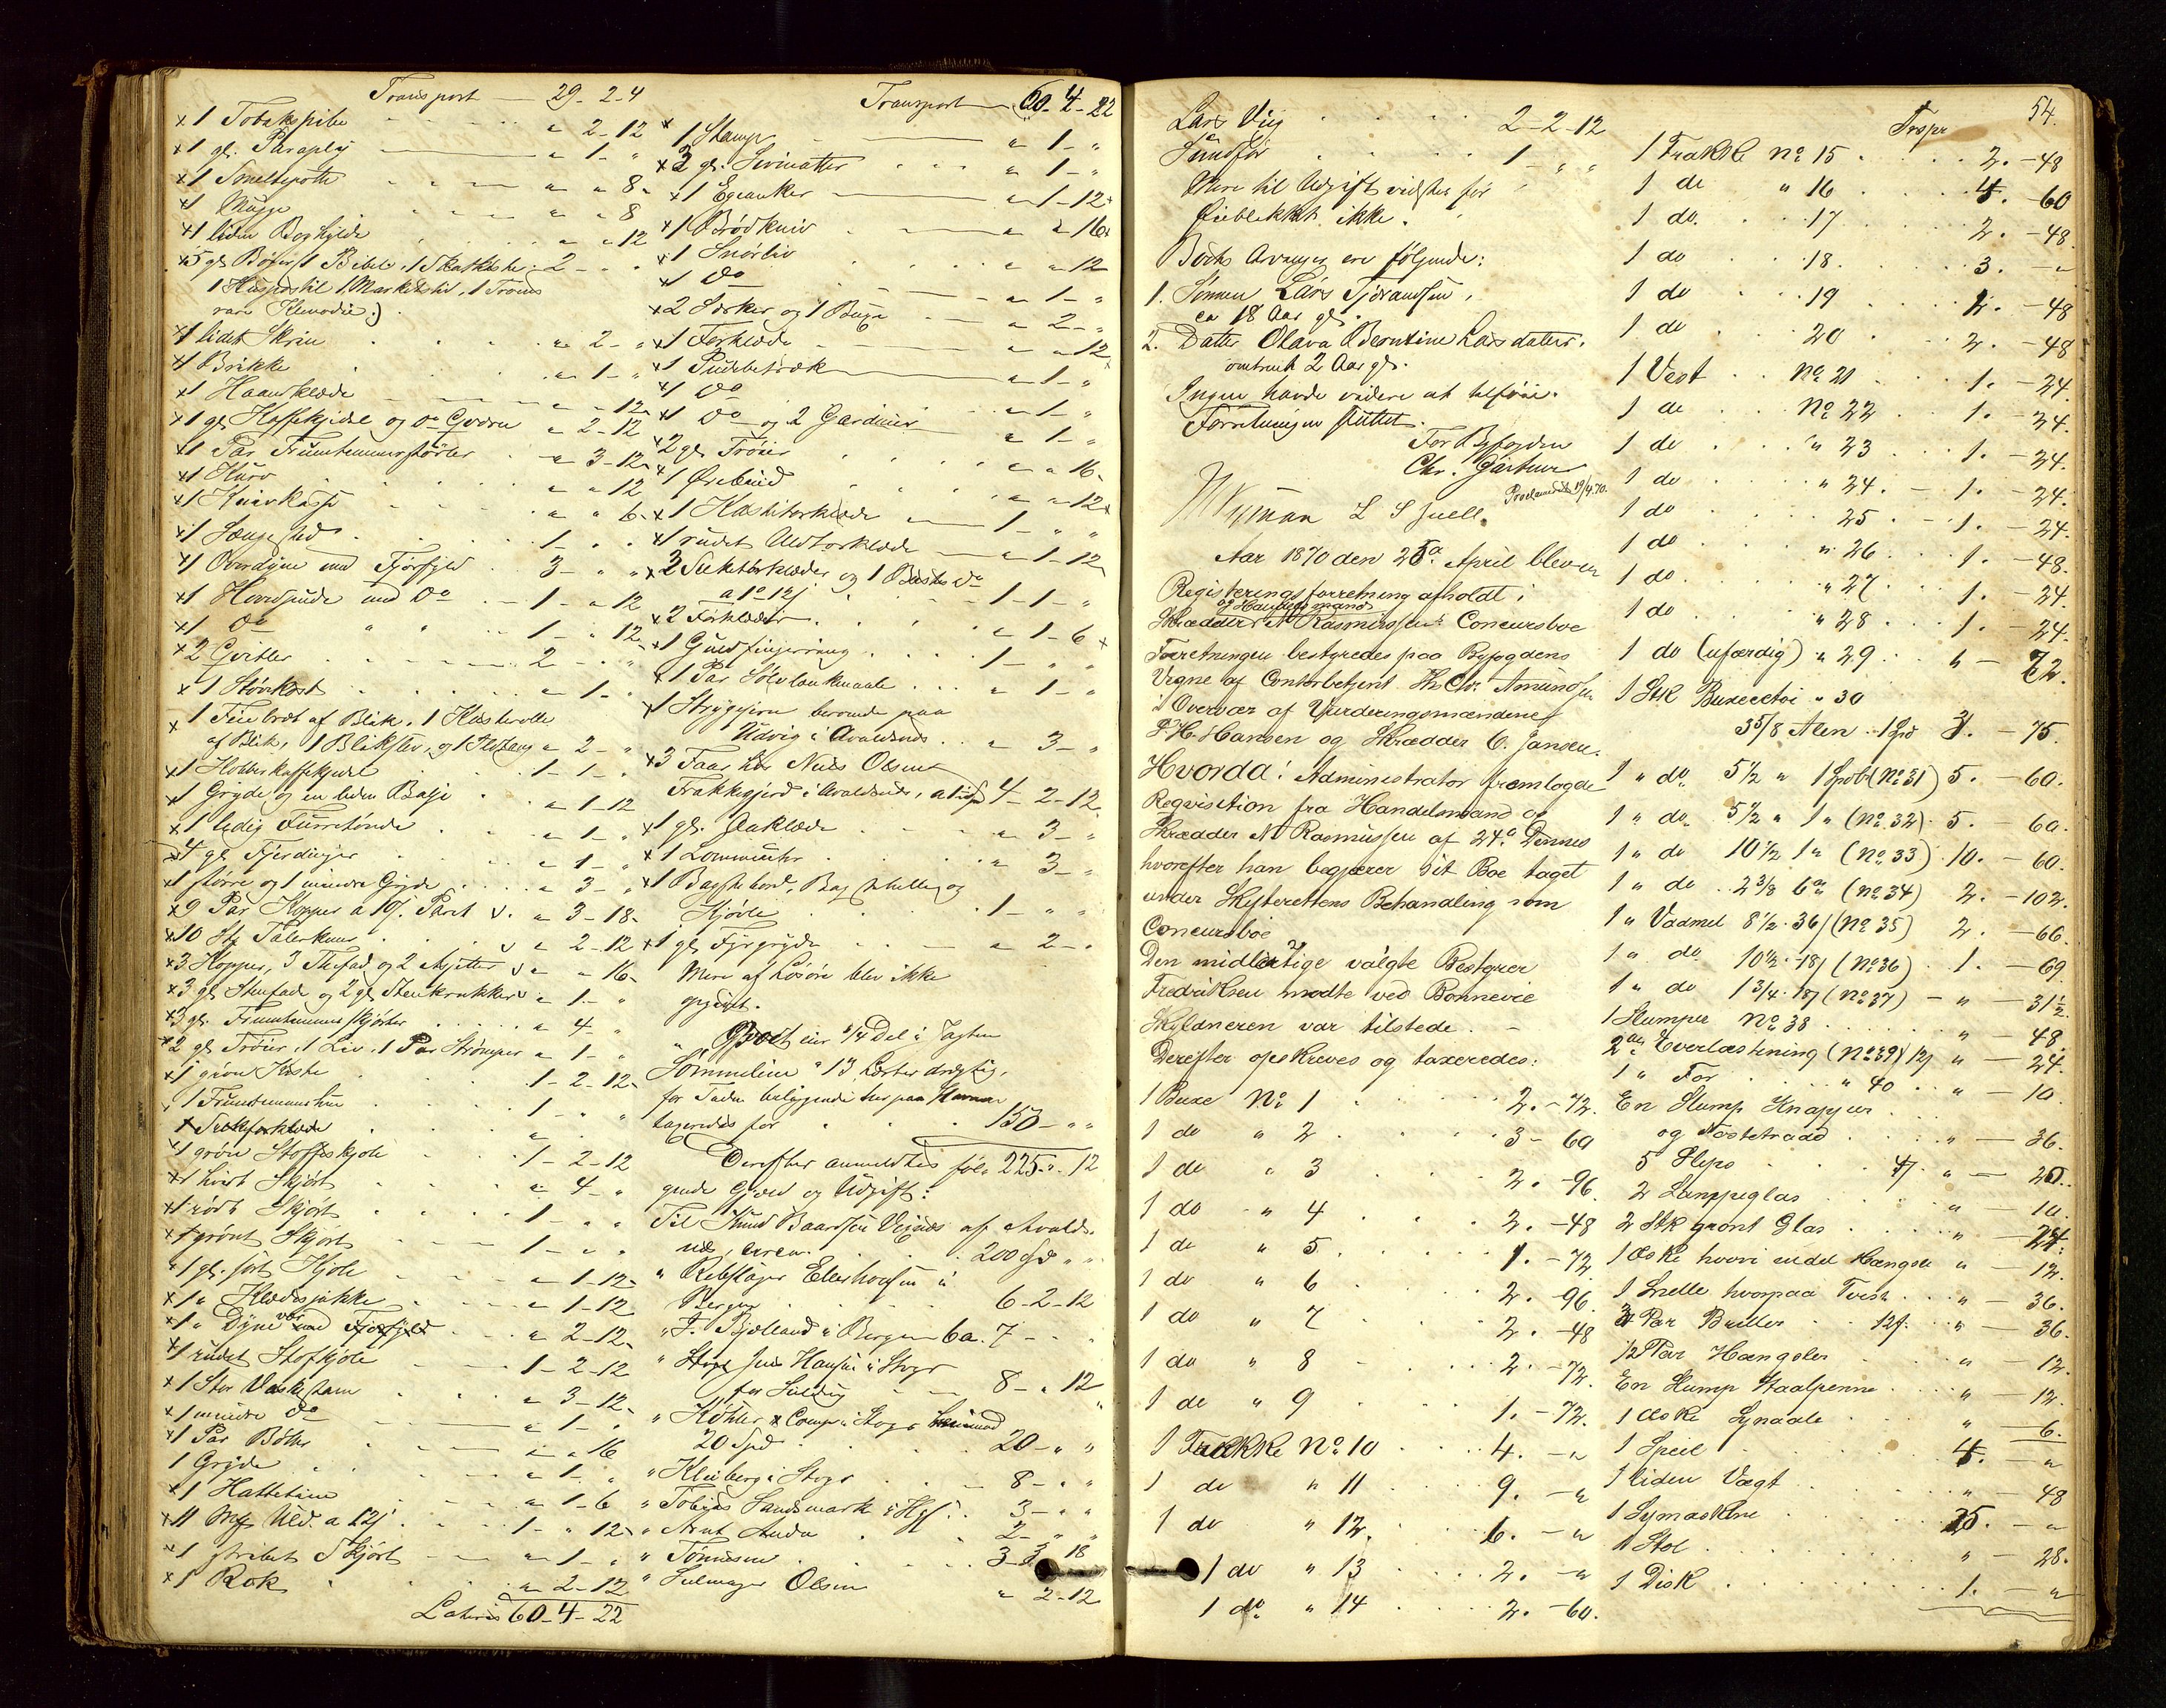 Transport — 29-2-4
x 1 Tobakspibe „ 2-12
x 1 gl. Paraply „ 1- „
x 1 Smeltepotte „ „ 8
x 1 Mugge „ „ 8
x 1 liden Boghylde „ „ 12
x 5 gl. Bøger (1 Bibel, 1 Skatkiste 2 - „
1 Huspostil
vare Klenodie.)
x 1 lidet Skrin „ 2- „
x 1 Brikke „ 1- „
x 1 Haandklæde „ „ 12
x 1 gl. Kaffekjedel og do Qværn „ 2-12
x 1 Par Fruentimmerstøvler „ 3-12
x 1 Kurv „ „ 12
x 1 Knivkasse „ „ 6
x 1 Sengested 1- „ „
x 1 Overdyne med Fjørfyld 3- „ „
x 1 Hovedpude med Do 1- „ 12
x 1 Do 1- „ 12
x 2 Qvitler 2- „ „
x 1 Støvkost „ 1- „
x 1 Feiebræt af Blik, 1 Kasterolle
af Blik, 1 Blikslev, og 1 Ildtang „ 2- „
x 1 Kobberkaffekjedel 1-1- „
x 1 Gryde og en liden Balje „ 1-12
x 1 ledig Tørretønde „ 1- „
x 4 gl. Fjerdinger „ 1- „
x 1 større og 1 mindre Gryde „ 3- „
x 9 Par Kopper a 10s. Paret „ 3-18
x 10 Stk Talerkener „ 2-12
x 3 Kopper, 3 Thefad og 2 Asjetter „ „ 16
x 3 gl. Stenfade og 2 gl. Stenkrukker „ 1- „
x 3 gl. Fruentimmerskjørter „ 4- „
x 2 gl. Trøier, 1 Liv, 1 Par Strømper „ 1- „
x 1 grøn Kiste 1-2-12
1 Fruentimmerhue 1- „ „
x 1 grøn Stoffskjole 1-2-12
x 1 hvidt Skjørt „ 4- „
x 1 rødt Skjørt 1- „ „
x 1 grønt Skjørt 1- „ „
x 1 gl. sort Kjole „ 1-12
x 1 „ Klædesjakke „ 1-12
x 1 „ Dynevar „ 2-12
x 1 rudet Stofkjole 1-2-12
x 1 Stor Vaskestam „ 3-12
x 1 mindre Do „ 1- „
x 1 Par Bøtter „ „ 16
1 Gryde „ 1- „
x 1 Hattetine „ 1-6
x 11 Mk Uld a 12s 1- „ 12
x 1 stribet Skjørt „ 1- „
x 1 Rok „ 2-12
Lateris 60-4-22
Transport — 60-4-22
x 1 Stamp „ 1- „
x 3 gl. Sivmatter „ 1- „
x 1 Egeanker „ 1-12
x 1 Brødkniv „ „ 16
x 1 Snørliv „ „ 12
x 1 Do „ 1- „
x 2 Særker og 1 Buxe „ 2- „
x 1 Forklæde „ „ 12
x 1 Pudebetræk „ 1- „
x 1 Do „ 1- „
x 1 Do og 2 Gardiner „ 1- „
x 2 gl. Trøier „ „ 16
x 1 „ „ 12
x 1 Kastetørklæde 1- „ „
x 1 rudet Uldtørklæde „ 1-12
x 2 Silketørklæder og 1 Do
a 1o 12s 1-1- „
x 2 Forklæder „ 1-6
x 1 Guldfingerring 1- „ „
x 1 Par Sølvlænkenaale „ 1- „
x 1 Strygejern beroende paa
Udvig i Avaldsnæs „ 3- „
x 3 Faar hos Niels Olsen
Frakkegjerd i Avaldsnæs, 4-2-12
x 1 gl. Aaklæde „ 3- „
x 1 Lommeuhr „ 3- „
x 1 Bagstebord, Bagsthelle og
Kjevle 1- „ „
x 1 gl. Fyrgryde „ 2- „
Mere af Løsøre blev ikke
opgivet.
„ Boet eier 1/4 Del i Jagten
Sømmeline 13 Læster drægtig,
for Tiden beliggende her paa Havnen
taxeredes for 150- „ „
225- „ 12
Derefter anmeldtes føl-
gende Gjæld og Udgift:
Til Knud Baardsen Veines af Avalds-
næs, circa 200 Spd „ „
„ Rebslager Ellerhousen i
Bergen 6-2-12
„ F. Bjelland i Bergen ca. 7- „ „
„ Jens Hansen i Stogs
for Sildsalg 8- „ 12
„ Køhler & Comp i Stogs
20 Spd 20- „ „
„ Kleiberg i Stogs 8- „ „
„ Tobias Sandsmark i Hgs. 3- „ „
„ Arnt Anda 2- „ „
„ Tønnesen 3-3 18
„ Seilmager Olsen „ 2-12
54.
Lars Vig 2-2-12
Sundfør 1- „ „
Mere til Udgift vidstes for
Øieblikket ikke.
Boets Arvinger ere følgende:
1. Sønnen Lars Tjerandsen,
ca 18 Aar gl.
2. Datter Olava Berntine Larsdatter,
omtrent 2 Aar gl.
Ingen havde videre at tilføie.
Forretningen sluttet.
For Byfogden
Chr. Gärtner
Nyman L S Juell.
Proclama 19/4.70.
Aar 1870 den 25de April blev en
Registreringsforretning afholdt i
og Handelsmand
Skrædder N Rasmussens Concursboe
Forretningen bestyredes paa Byfogdens
Vegne af Contorbetjent Hr Chr. Amundsen
i Overvær af Vurderingsmændene
P. H. Hansen og Skrædder C. Jansen.
Hvorda! Administrator fremlagde
Reqvisition fra Handelsmand og
Skrædder N Rasmussen af 24de Dennes
hvorefter han begjærer sit Boe taget
under Skifterettens Behandling som
Concursboe
Den midlertige valgte Bestyrer
Fredriksen mødte ved Bonnevie
Skyldneren var tilstede.
Derefter opskreves og taxeredes:
1 Buxe No 1 2.-72.
1 do „ 2 3- 60
1 do „ 3 2.-96.
1 do „ 4 2.-48
1 do „ 5 1.-72
1 do „ 6 2.-96.
1 do „ 7 2.-48
1 do „ 8 2.-72.
1 do „ 9 1.-72.
1 Frakke No 10 4.- „
1 do „ 11 9.- „
1 do „ 12. 6.- „
1 do „ 13 2.- „
1 do „ 14 2.-60.
Trspr
1 Frakke No 15 2.-48
1 do „ 16 4.-60
1 do. 17 2.-48.
1 do 18. 3.- „
1 do 19 2.-48
1 do 20 2.-48
1 Vest No 21 1.-24.
1 do No 22 1.-24.
1 do „ 23 1.-24.
1 do „ 24. 1.-24.
1 do 25 1.-24.
1 do „ 26 1.-48.
1 do. „ 27 1.-24.
1 do „ 28 1.-24.
1 do (ufærdig) „ 29 „ -72.
1 Stk Buxetøi „ 30
3 5/8 Alen 1 Spd 3.-75.
1 „ do 5 1/2 „ 1 Spd (No 31) 5.-60.
1 „ do 5 1/2 „ 1 „ (No 32) 5.-60.
1 „ do 10 1/2 1 „ (No 33) 10.-60.
1 „ do 2 3/8 6 (No 34) 2.-102.
1 „ Vadmel 8 1/2. 36s (No 35) 2.-66.
1 „ do 10 1/2. 18s (No 36) 1.-69
1 „ do 1 3/4. 18s (No 37) „ -31 1/2.
1 Stumper No 38 „ -48.
2 al. Everlastning (No 39) 12s „ -24.
1 „ For „ 40 „ -10.
En Slump Knapper
og Næstetraad „ -36.
5 Slips 4s. „ -20.
2 Lampeglas „ -10.
2 Stk grønt Glas „ -24.
1 Æske hvori endel Hængsler „ -12.
1 Snelle hvorpaa Tvist „ -36.
3 Par Briller 12s. „ -36.
1/2 Par Hængsler „ -12.
En Slump Staalpenne „ -12.
1 Æske Synaale „ -6.
1 Speil 4.- „
1 liden Vægt „ -48
1 Symaskine 25.- „
1 Stol „ -28.
1 Disk 1.- „